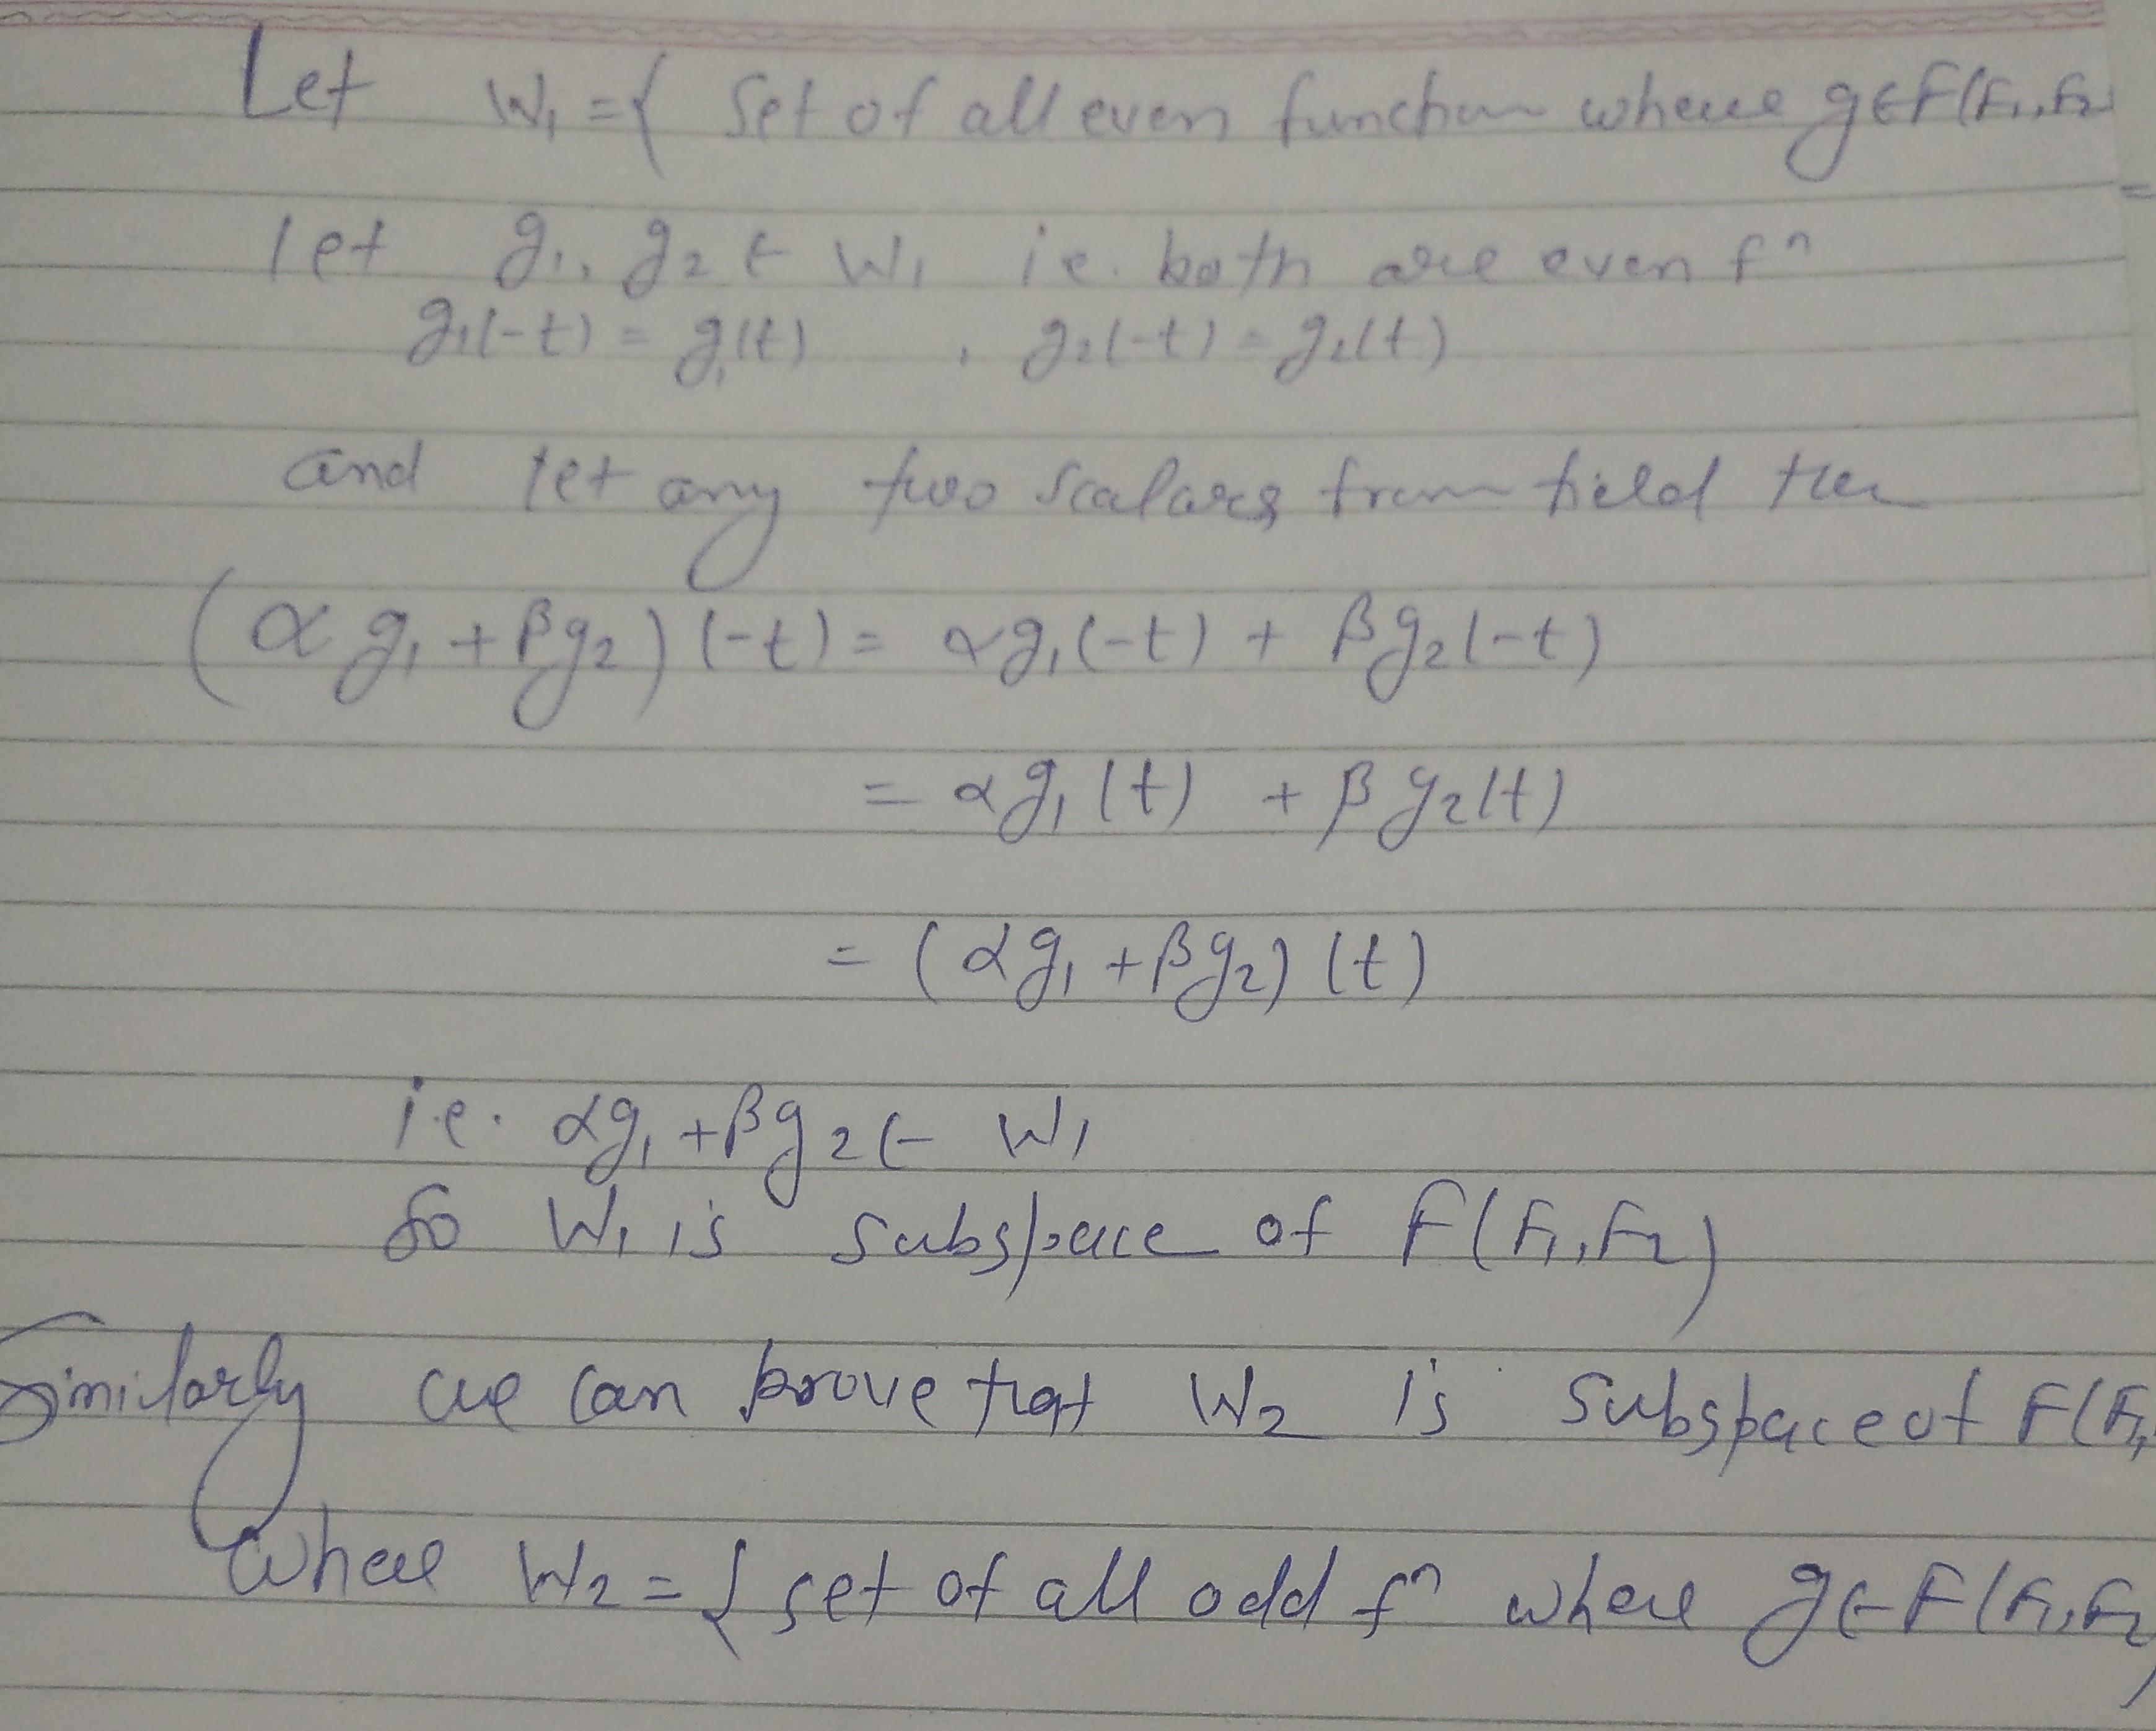 Let W₁ = { Set of all even function where g∈F(F₁,F₂
let g₁, g₂ ∈ W₁ i.e. both are even fⁿ
g₁(-t) = g₁(t) , g₂(-t) = g₂(t)
and let any two scalars from field then
(αg₁ + βg₂)(-t) = αg₁(-t) + βg₂(-t)
= αg₁(t) + βg₂(t)
= (αg₁ + βg₂)(t)
i.e. αg₁ + βg₂ ∈ W₁
So W₁ is subspace of F(F₁,F₂)
Similarly we can prove that W₂ is subspace of F(F₁,
Where W₂ = { set of all odd fⁿ where g∈F(F₁,F₂)